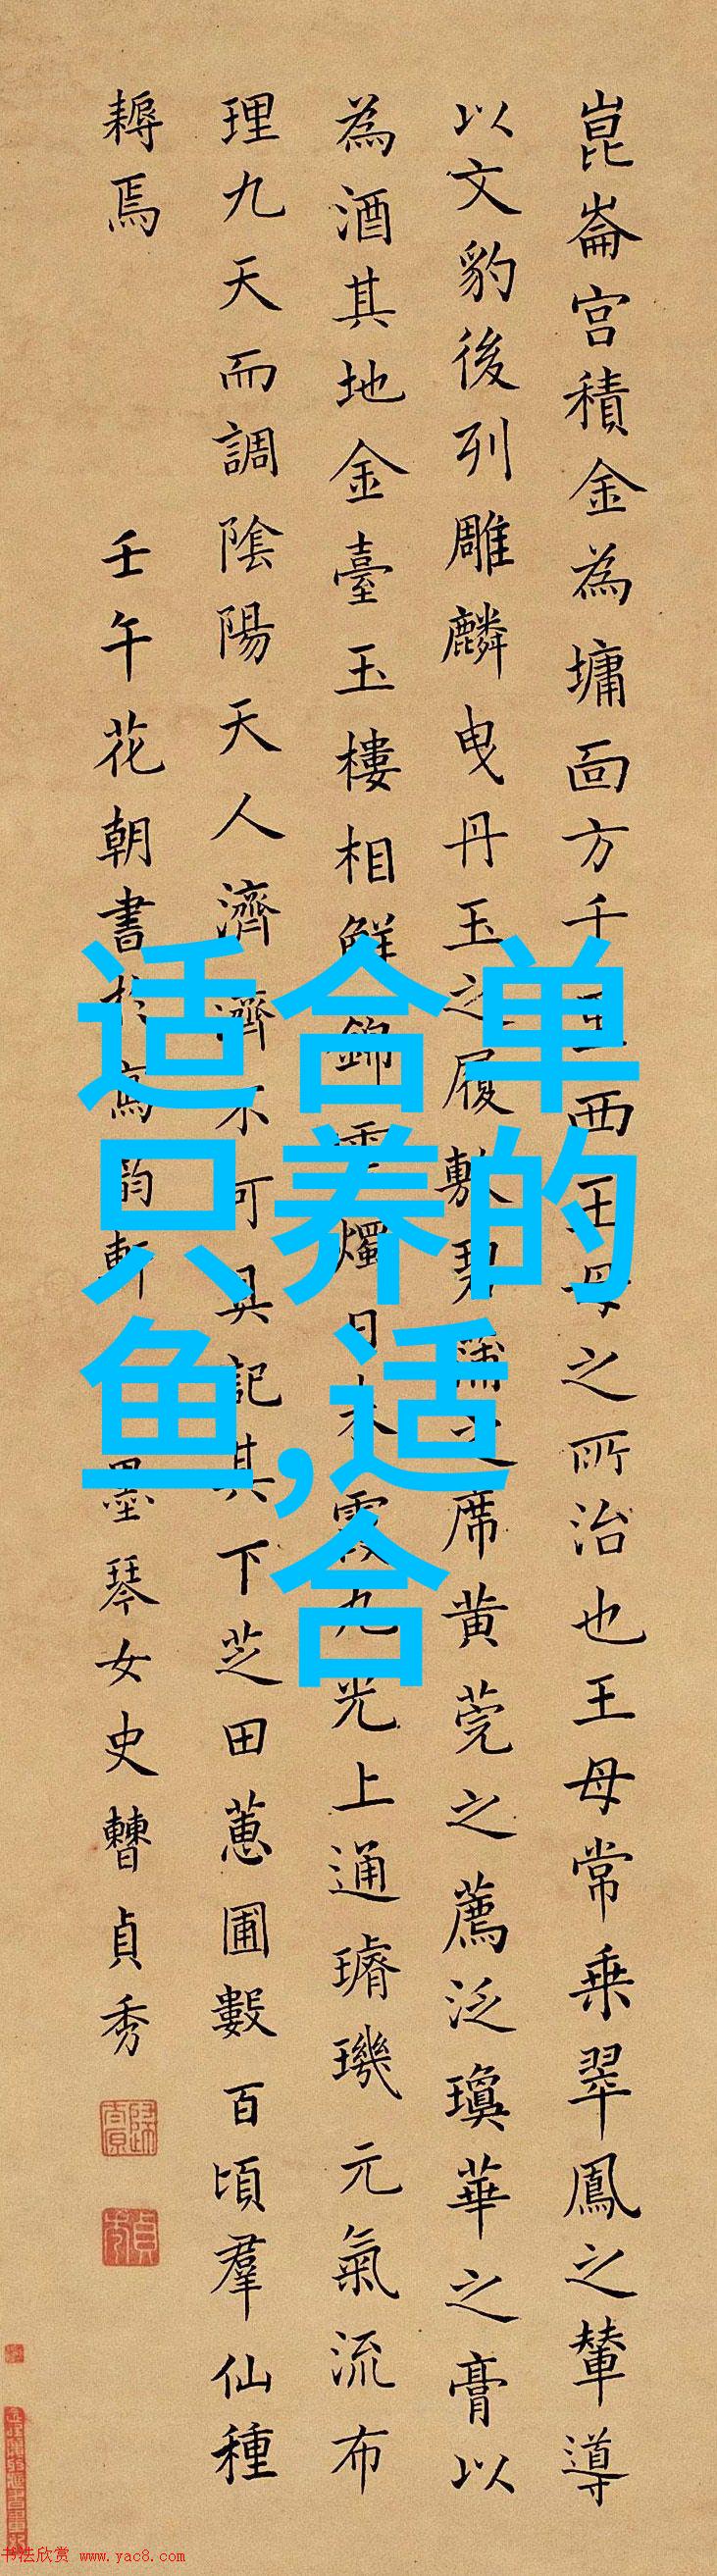 崑崙宮積金為墉面方千里西王母之所治也王母常乗翠鳳之輦導
以文豹後列雕麟曳丹玉之履敷碧蒲之席黄莞之薦泛瓊華之膏以
為酒其地金臺玉樓相鮮錦雲燭日朱霞九光上通璿璣元氣流布
理九天而調陰陽天人濟濟不可具記其下芝田蕙圃數百頃羣仙種
耨焉
壬午花朝書於寫韵軒 墨琴女史曹貞秀
适合单
只养的
鱼,适
合
书法欣赏 www.yac8.com